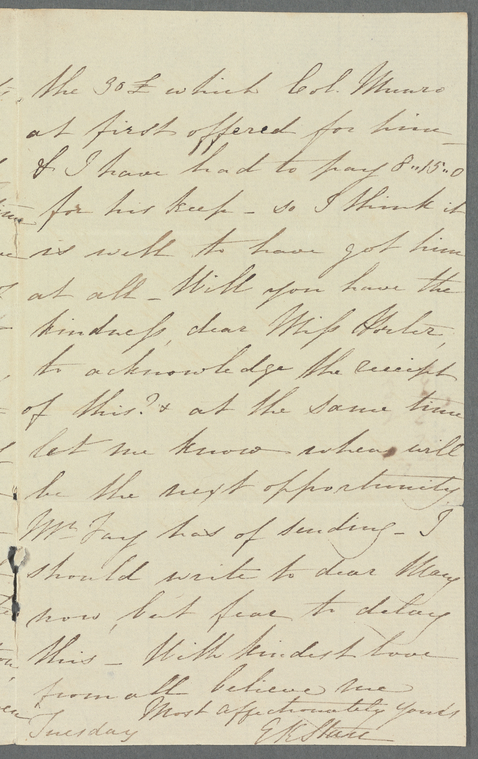 the 30£ which Col. Munro
at first offered for him _
& I have had to pay 8"15"0
for his keep - so I think it
is well to have got him
at all _ Will you have the
kindness, dear Miss Porter,
to acknowledge the receipt
of this? & at the same time
let me know when will
be the next opportunity
Mr Fay has of sending - I
should write to dear Mary
now, but fear to delay
this _ With kindest love
from all believe me
Most affectionately yours
Tuesday E K